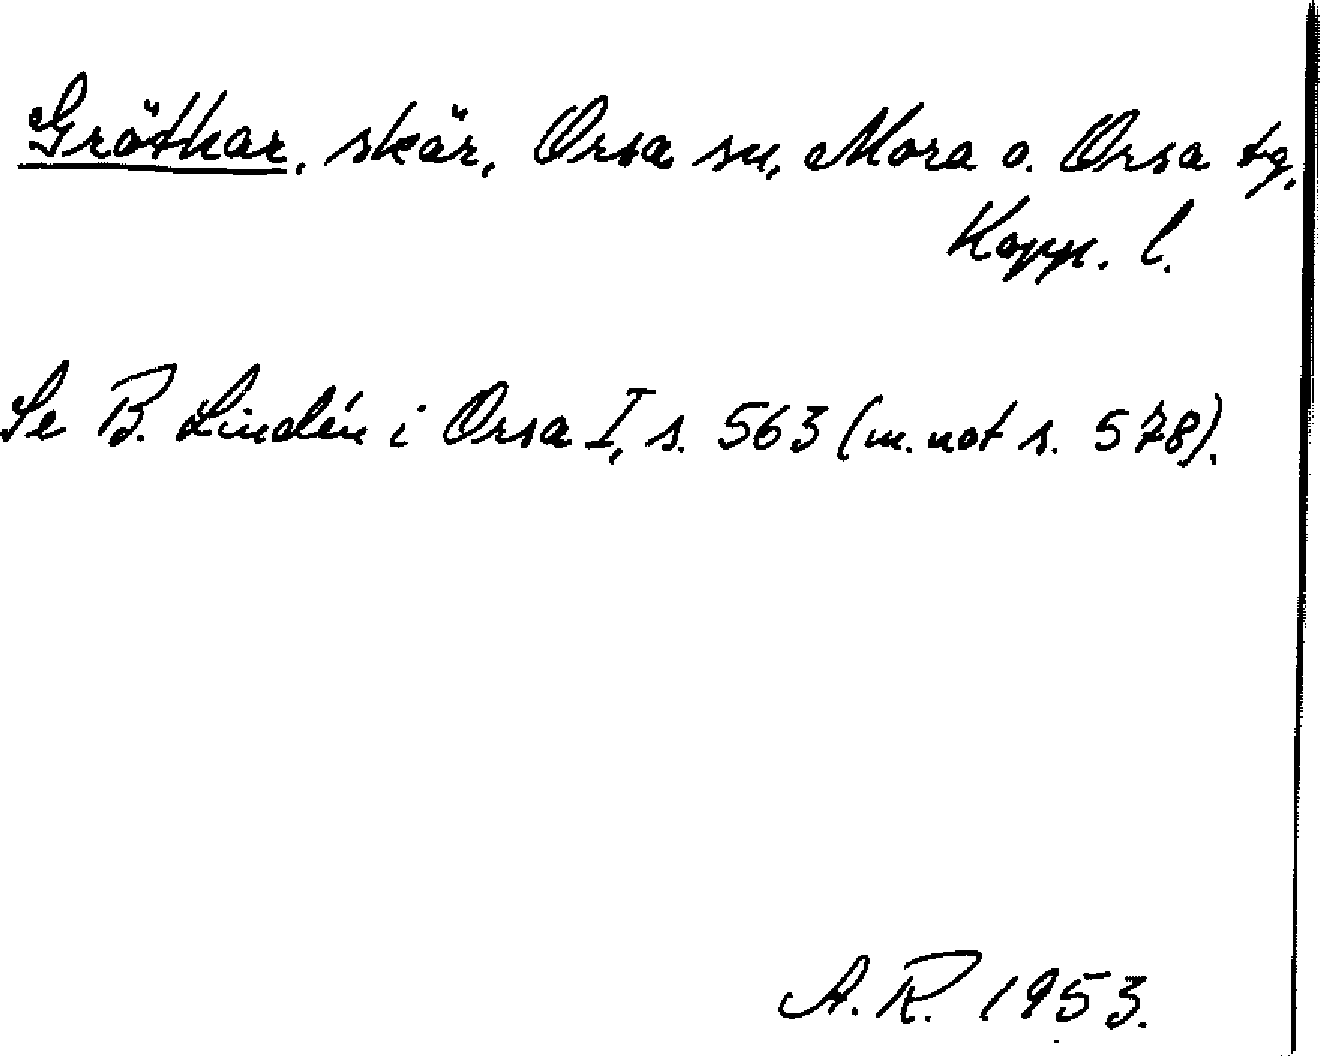 Grötkar, skär, Orsa sn, Mora o. Orsa tg,
Kopp. l.
Se B. Lindén i Orsa I, s. 563 (m. not s. 578).
A. R. 1953.